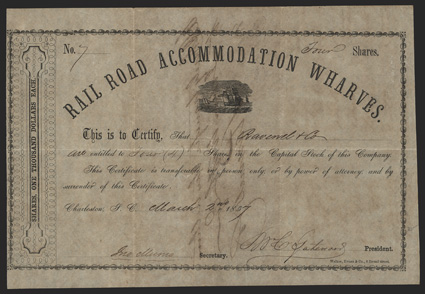 No. 7
Four Shares.
RAIL ROAD ACCOMMODATION WHARVES.
SHARES, ONE THOUSAND DOLLARS EACH.
This is to Certify, That Ravenel & Co
are entitled to Four (4) Shares in the Capital Stock of this Company.
This Certificate is transferable in person only or by power of attorney and by
surrender of this Certificate.
Charleston, S. C. March 2nd 1857
Secretary.
President.